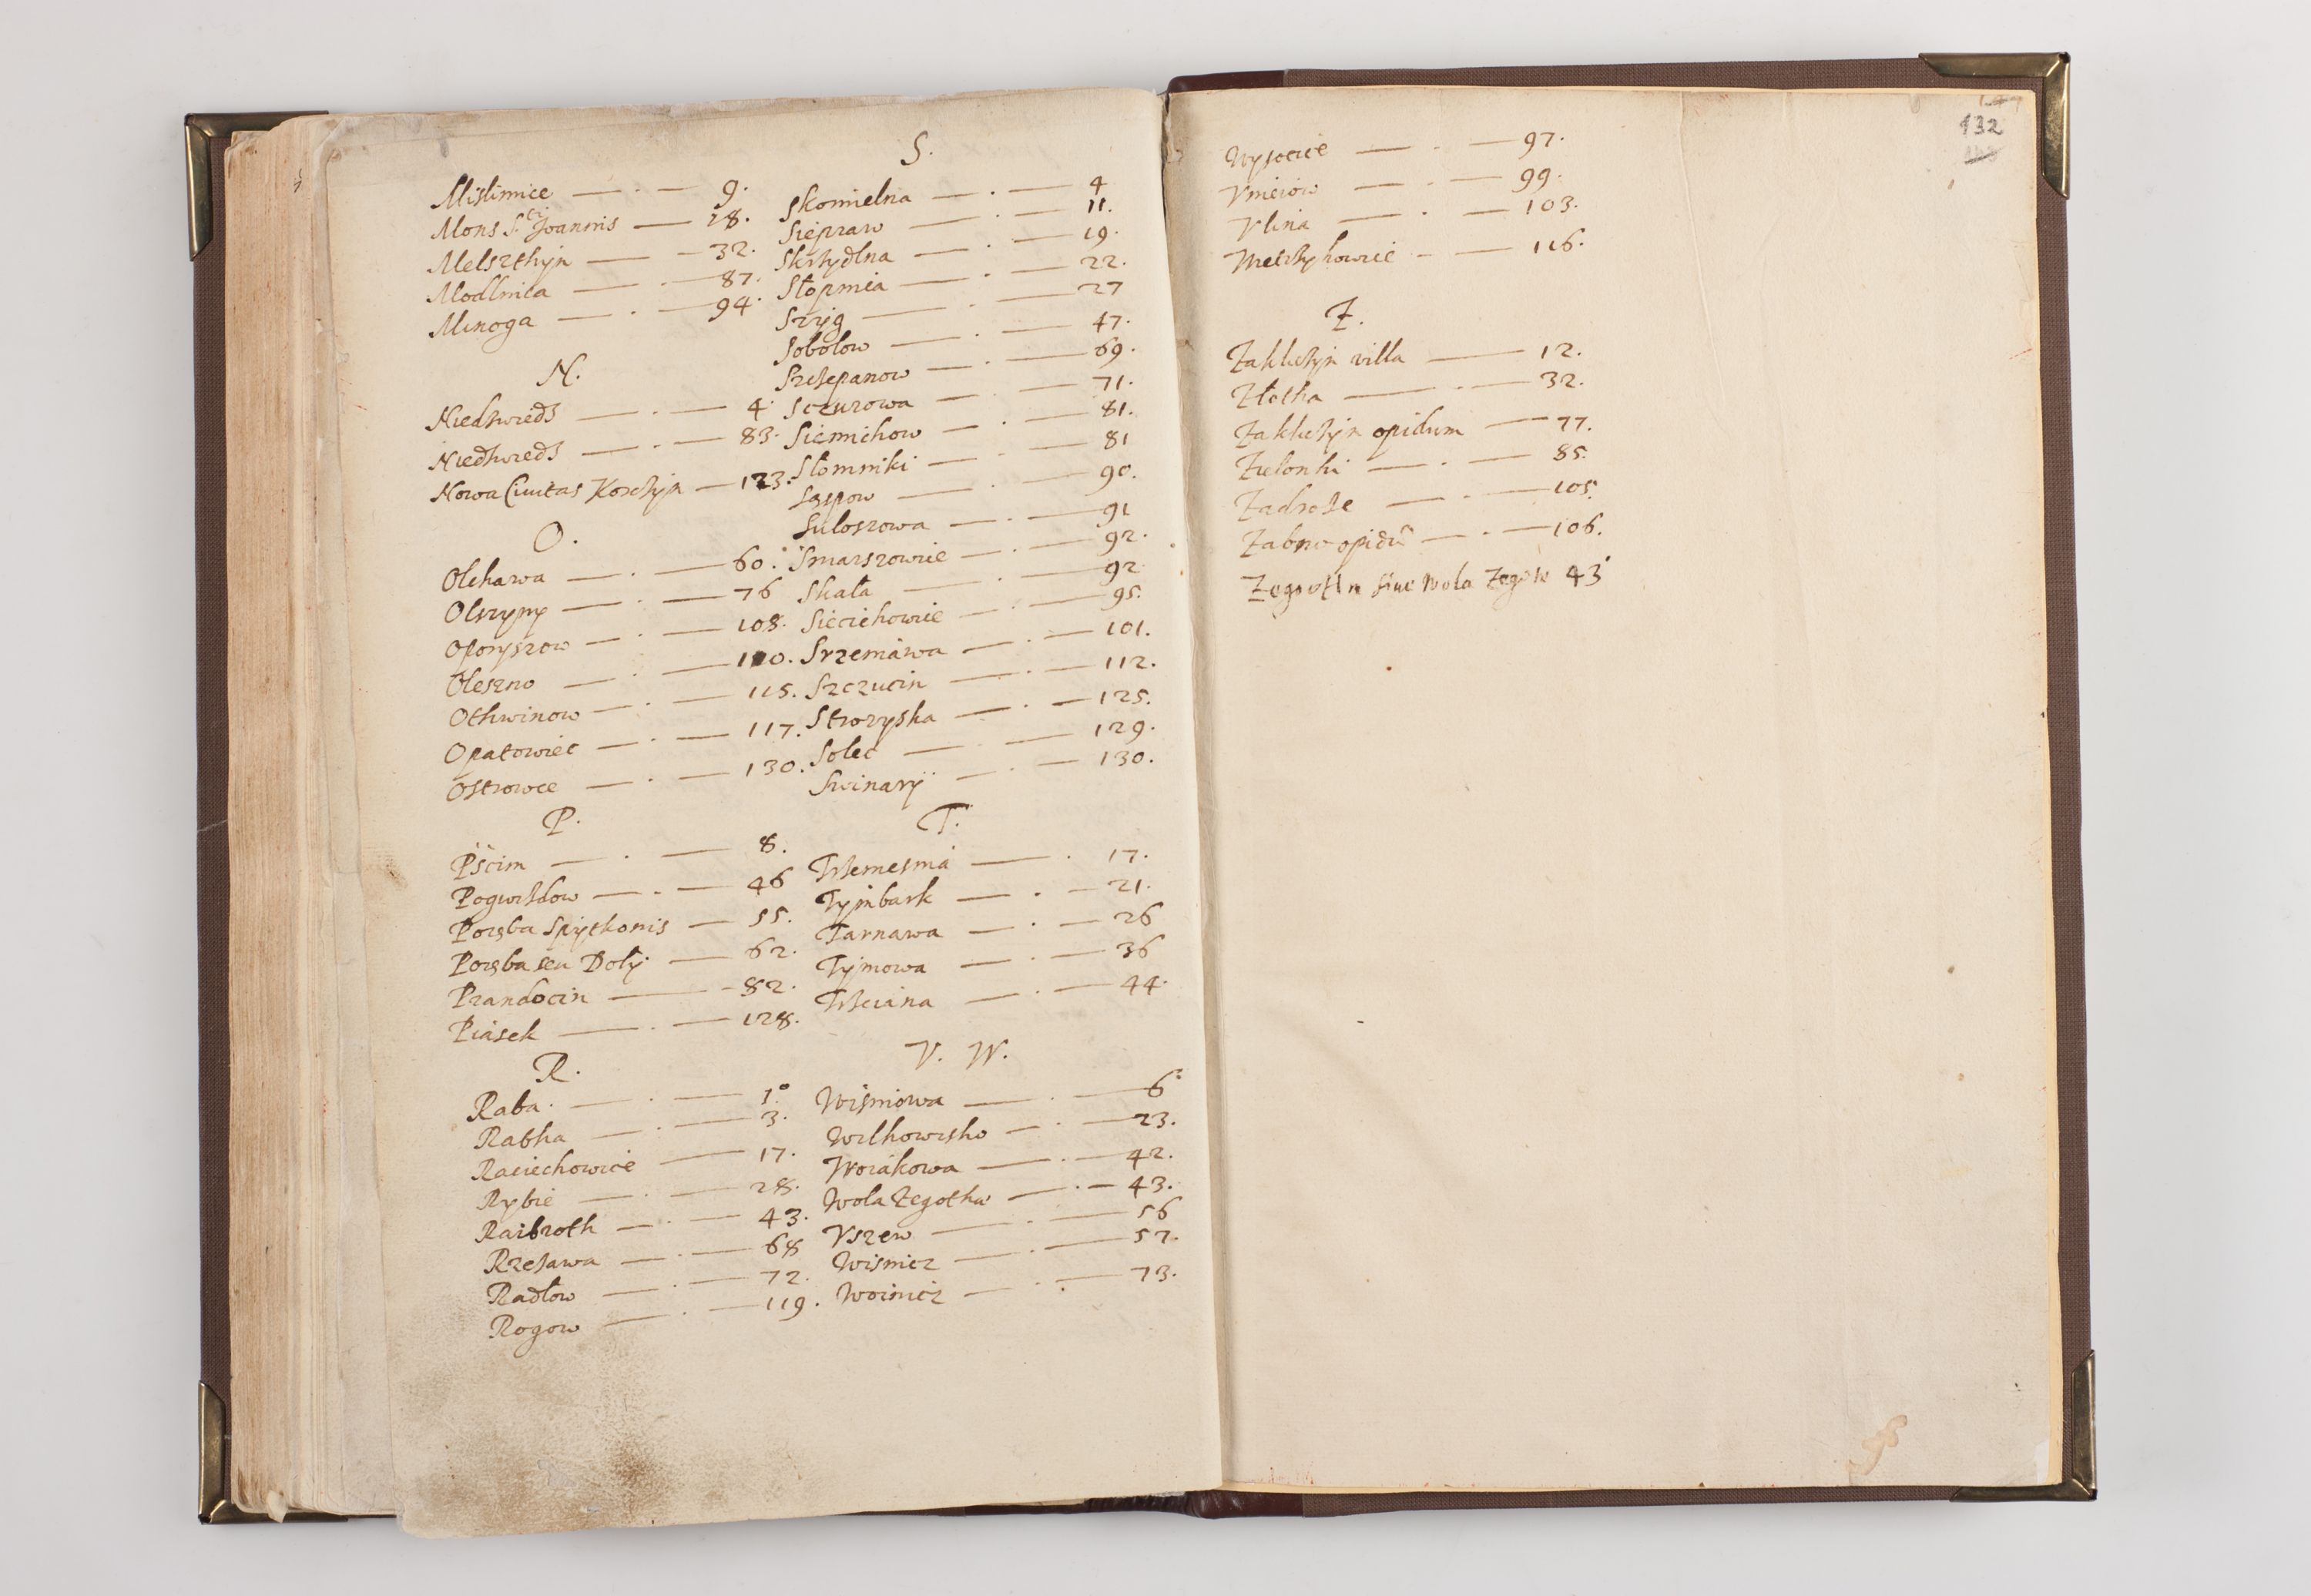 Mislimice — . — 9.
Mons S.cti Joannis — 18.
Melszthyn — — 32.
Modlnica — . — 87.
Minoga — . — 94.
N.
Niedzwiedz — . — 4.
Niedzwiedz — . — 83.
Nowa Civitas Korczyn — 123.
O.
Olchawa — . — 60.
Olszyny — . — 76
Oporyszow — . — 108.
Oleszno — . — 110.
Othwinow — . — 115.
Opatowiec — . — 117.
Ostrowce — . — 130.
P.
Pscim — . — 8.
Pogwizdow — . — 46
Poręba Spytkonis — 55.
Poręba seu Doły — 62.
Prandocin — 82.
Piasek — . — 128.
R.
Raba. — . — 1.
Rabka — . — 3.
Raciechowice — 17.
Rybie — . — 28.
Raibroth — . — 43.
Rzezawa — . — 68
Radłow — . — 72.
Rogow — . — 119.
S.
Skomielna — . — 4
Siepraw — . — 11.
Skrzydlna — . — 19.
Słopnica — . — 22.
Szyg — . — 27
Sobolow — . — 47.
Szczepanow — . — 69.
Sczurowa — . — 71.
Siemichow — . — 81.
Słomniki — . — 81
Sąspow — . — 90.
Suloszowa — . — 91
Smarszowice — . — 92.
Skała — . — 92
Sieciehowice — . — 95.
Srzemawa — . — 101.
Szczucin — . — 112.
Strozyska — . — 125.
Solec — . — 129.
Swinary — . — 130.
T.
Trzemesnia — . 17.
Tymbark — . — 21.
Tarnawa — . — 26
Tymowa — . — 36
Trzciana — . — 44.
V. W.
Wisniowa — . — 6
Wilkowisko — . — 23.
Woiakowa — . — 42.
Wola Zegothw — . — 43.
Vszew — . — 56
Wisnicz — . — 57.
Woinicz — . — 73.
132
Wysocice — . — 97.
Vnieiow — . — 99.
Vlina — . — 103.
Z.
Zakliczyn villa — 12.
Złotha — . — 32.
Zakliczyn opidum — 77.
Zielonki — . — 85.
Zadroze — . — 105.
Zabno opidū — . — 106.
siue Wola 43